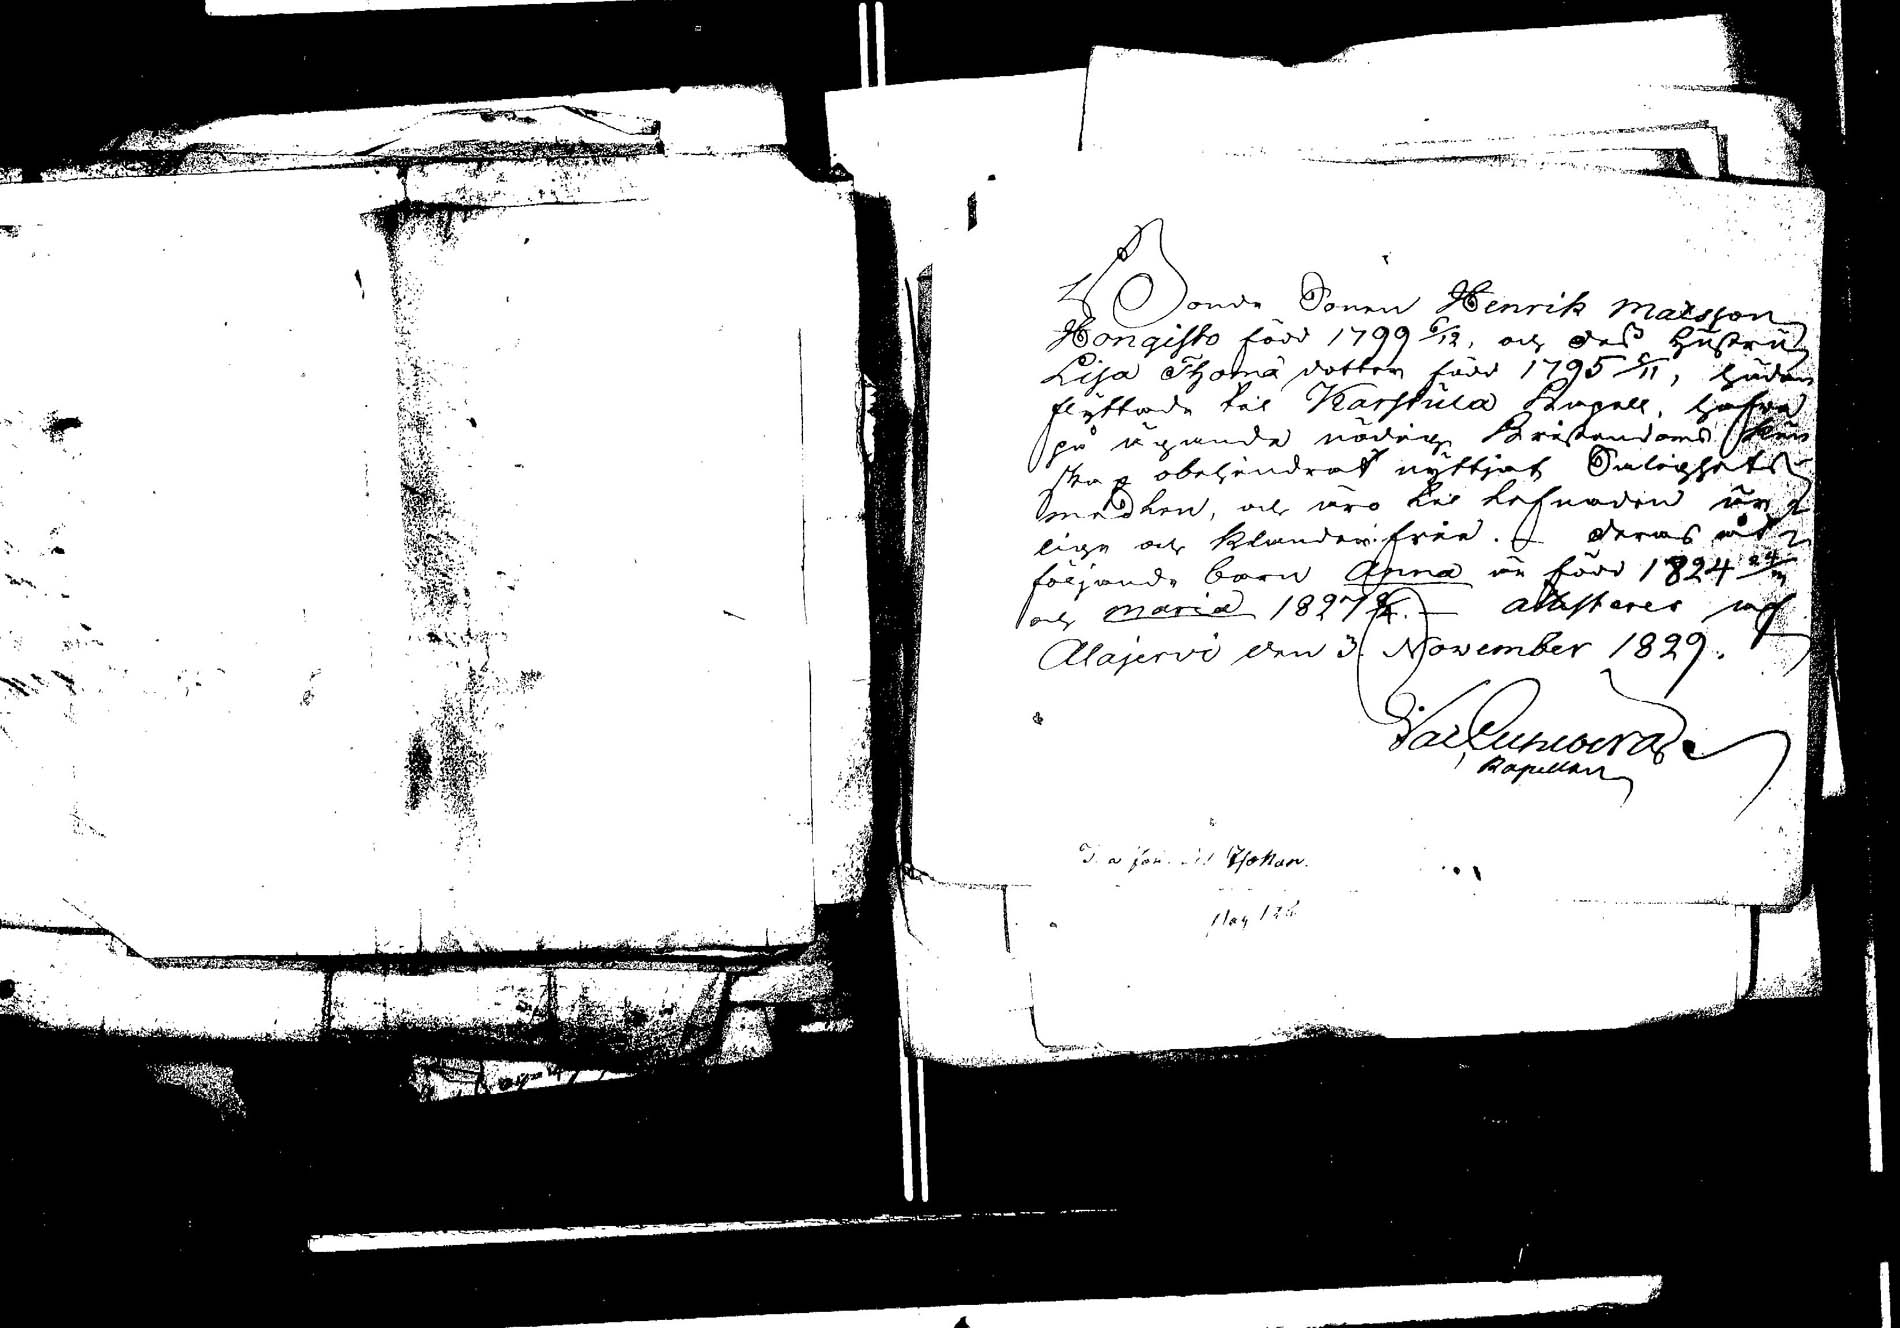 Bonde Sonen Henrik Matsson
Hongisto född 1799 6/12, och dess hustru
Lisa Thomæ dotter född 1795 5/11, hädan
flyttade till Karstula Kapell, hafva
på ägande nödig Kristendoms kun
skap obehindrat nyttjat Salighets
medlen, och äro till lefnaden är
lige och klanderfrie. — deras med
följande barn Anna är född 1824
och Maria 1827 — attesterer
Alajervi den 3 November 1829.
Kapellan
Johan.
Pag